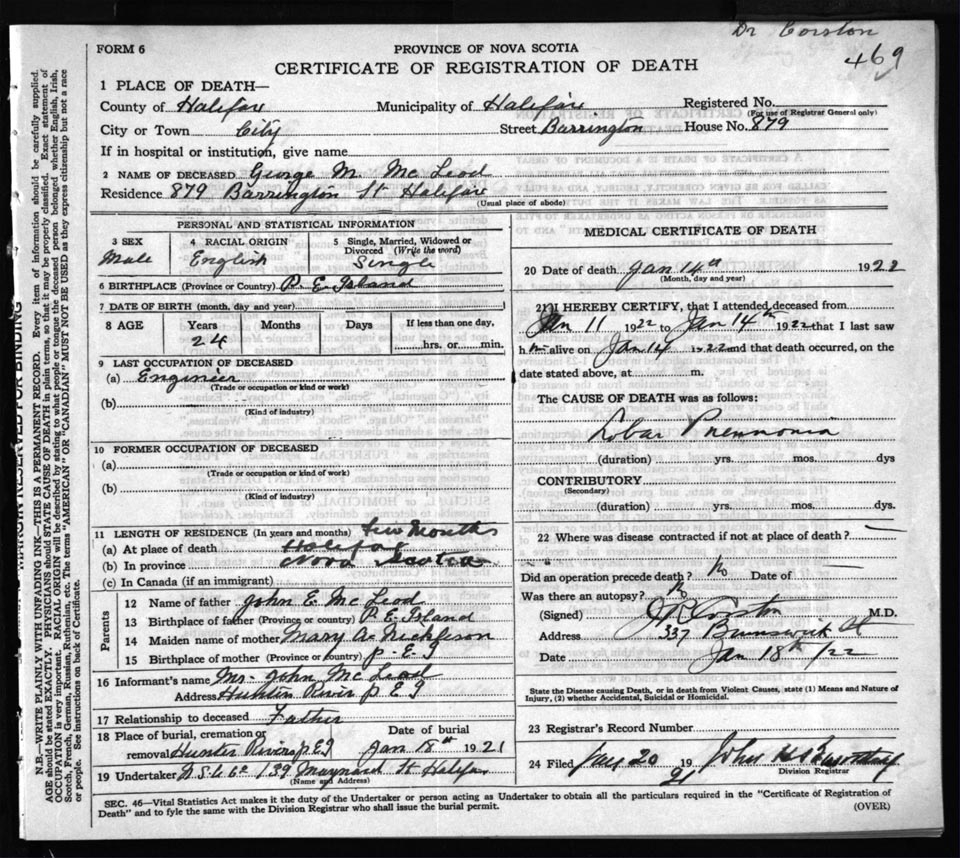 Dr Corston
469
FORM 6
PROVINCE OF NOVA SCOTIA
CERTIFICATE OF REGISTRATION OF DEATH
1 PLACE OF DEATH—
County of Halifax Municipality of Halifax Registered No.
(For use of Registrar General only)
City or Town City Street Barrington House No. 879
If in hospital or institution, give name
2 NAME OF DECEASED George M. McLeod
Residence 879 Barrington St Halifax
(Usual place of abode)
PERSONAL AND STATISTICAL INFORMATION
3 SEX Male
4 RACIAL ORIGIN English
5 Single, Married, Widowed or Divorced (Write the word) Single
6 BIRTHPLACE (Province or Country) P. E. Island
7 DATE OF BIRTH (month, day and year)
8 AGE Years Months Days If less than one day,
24 hrs. or min.
9 LAST OCCUPATION OF DECEASED
(a) Engineer
(Trade or occupation or kind of work)
(b)
(Kind of industry)
10 FORMER OCCUPATION OF DECEASED
(a)
(Trade or occupation or kind of work)
(b)
(Kind of industry)
11 LENGTH OF RESIDENCE (In years and months) Few Months
(a) At place of death Halifax
(b) In province Nova Scotia
(c) In Canada (if an immigrant)
Parents
12 Name of father John E McLeod
13 Birthplace of father (Province or Country) P E Island
14 Maiden name of mother Mary A.
15 Birthplace of mother (Province or country) P. E I
16 Informant's name Mr. John McLeod
Address Hunter River P E I
17 Relationship to deceased Father
18 Place of burial, cremation or Date of burial
removal Hunter River P E I Jan 18th 1921
19 Undertaker 139 Maynard St Halifax
(Name and Address)
MEDICAL CERTIFICATE OF DEATH
20 Date of death Jan 14th 1922
(Month, day and year)
21 I HEREBY CERTIFY, that I attended deceased from
Jan 11 1922 to Jan 14th 1922 that I last saw
h im alive on Jan 14 1922 and that death occurred, on the
date stated above, at m.
The CAUSE OF DEATH was as follows:
Lobar Pneumonia
(duration) yrs. mos. dys
CONTRIBUTORY
(Secondary)
(duration) yrs. mos. dys.
22 Where was disease contracted if not at place of death?
Did an operation precede death? No Date of
Was there an autopsy? No
(Signed) J R Corston M.D.
Address 337 Brunswick St
Date Jan 18th /22
State the Disease causing Death, or in death from Violent Causes, state (1) Means and Nature of
Injury, (2) whether Accidental, Suicidal or Homicidal.
23 Registrar's Record Number
24 Filed Jan 20 19 21 John
Division Registrar
SEC. 46—Vital Statistics Act makes it the duty of the Undertaker or person acting as Undertaker to obtain all the particulars required in the "Certificate of Registration of
Death" and to fyle the same with the Division Registrar who shall issue the burial permit.
(OVER)
MARGIN RESERVED FOR BINDING
N.B.—WRITE PLAINLY WITH UNFADING INK—THIS IS A PERMANENT RECORD. Every item of information should be carefully supplied.
AGE should be stated EXACTLY. PHYSICIANS should STATE CAUSE OF DEATH in plain terms, so that it may be properly classified. Exact statement of
OCCUPATION is very important. RACIAL ORIGIN will be described by stating to what people or tongue the deceased person belonged, whether English, Irish,
Scotch, French, German, Russian, Ruthenian, etc. The terms "AMERICAN" OR "CANADIAN" MUST NOT BE USED as they express citizenship but not a race
or people. See instructions on back of Certificate.